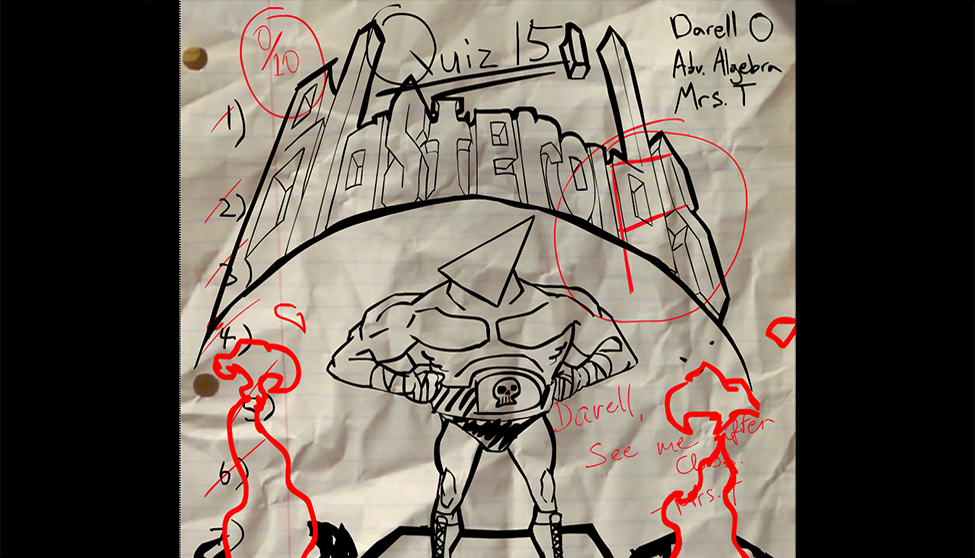 Quiz 15
Darell O
Adv. Algebra
Mrs. T
0/10
1)
2)
3)
F
4)
5)
Darell,
See me after
Class.
-Mrs. T
6)
7)